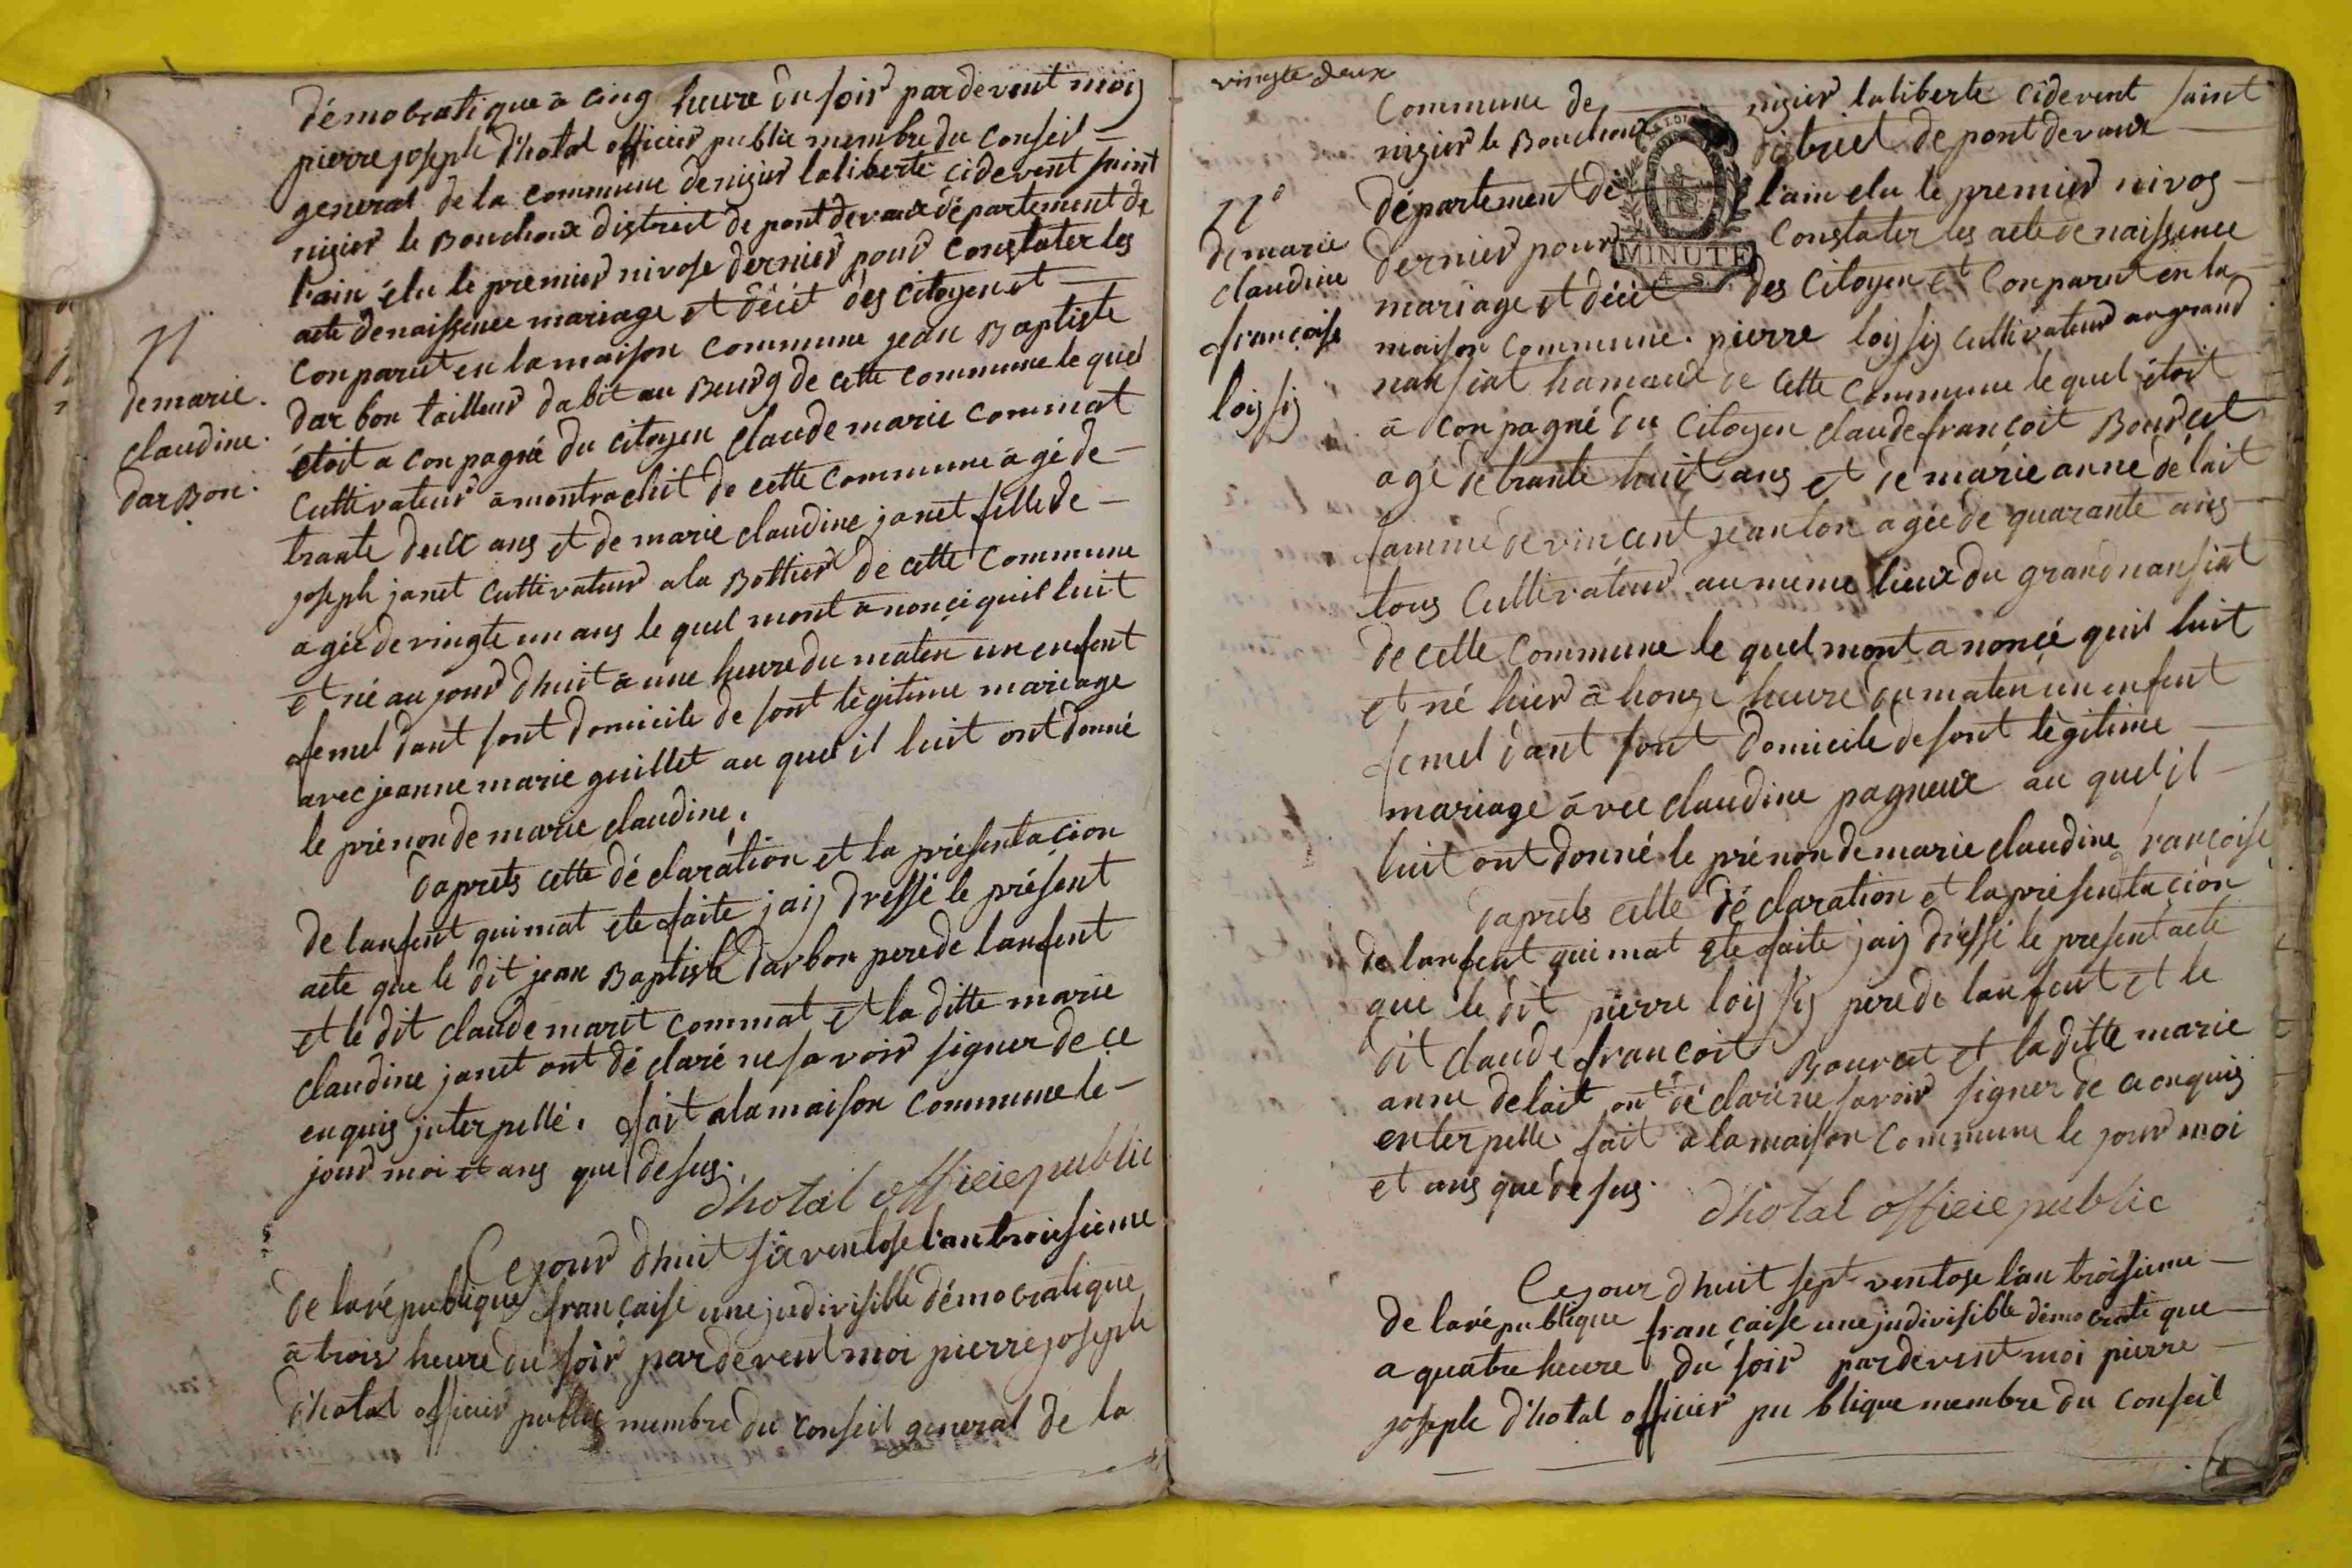 démocratique à cinq heure du soir pardevent moij
pierre joseph d'hotal officier public membre du conseil
general de la commune denizier laliberté cidevent saint
nizier le Bouchoux district de pontdevaux département de
l'ain élu le premier nivose dernier pour constater les
acte denaissence mariage et décit des citoyen et
conparut en lamaison commune jean Baptiste
darbon tailleur dabit au Bourg de cette commune le quel
étoit a conpagné du citoyen claude marie commat
cultivateur à montrachit de cette commune àgé de
trante deux ans et de marie claudine janet fille de
joseph janet cultivateur a la Bottier de cette commune
agée de vingte un ans le quel mont à nonçé quil luit
et né au jour dhuit à une heure du maten un enfent
femel dant sont domicile de sont légitime mariage
avec jeanne marie guillet au quel il luit ont donné
le prénon de marie claudine.
daprets cette déclaration et la présentacion
de lanfent quimat ete faite jaij dressé le présent
acte que le dit jean Baptiste darbon pere de lanfent
et le dit claude marit commat et la ditte marie
claudine janet ont déclaré ne savoir signer de ce
enquis interpellé. fait a lamaison commune le
jour moi et ans que desus.
d'hotal officie public
Ce jour dhuit six ventose l'an troisieme
de la république française une indivisible démocratique
à trois heure du soir pardevent moi pierre joseph
d'hotal officier public membre du conseil general de la
N
de marie
claudine
darBon
vingte deux
commune de nizier laliberté cidevent saint
nizier le Bouchoux district de pont devaux
département de l'ain elu le premier nivos
dernier pour constater les acte de naissence
mariage et décit des citoyen et conparut en la
maison commune. pierre loijsij cultivateur au grand
nansiat hamaux de cette commune le quel étoit
à conpagné du citoyen claude françoit Bourcet
agé de trante huit ans et de marie anne delait
famme de vincent jeanton agée de quarante ans
tous cultivateur au meme lieux du grand nansiat
de cette commune le quel mont a noncé quil luit
et né hier à honze heure du maten un enfent
femel dant sont domicile de sont légitime
mariage àvec claudine pagneux au quel il
luit ont donné le prénon de marie claudine françoise
daprets cette déclaration et la présentacion
de lanfent quimat ete faite jaij dréssé le present acte
que le dit pierre loijsij pere de lanfent et le
dit claude françoit Bourcet et la ditte marie
anne delait ont déclaré ne savoir signer de ce onquij
enterpelle fait a la maison commune le jour moi
et ans que desus.
d'hotal officie public
Ce jour dhuit sept ventose l'an troisieme
de la république française une indivisible démocratique
a quatre heure du soir pardevent moi pierre
joseph d'hotal officier publique membre du conseil
N°
de marie
claudine
françoise
loijsij
MINUTE
4 S